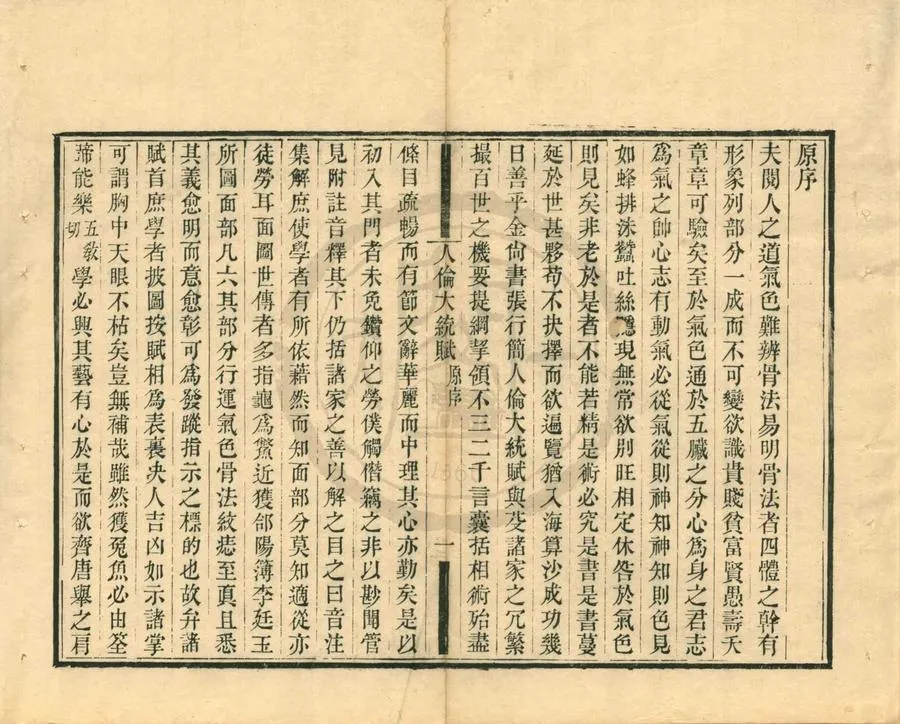 原序
夫閱人之道氣色難辨骨法易明骨法者四體之幹有
形象列部分一成而不可變欲識貴賤貧富賢愚壽夭
章章可驗矣至於氣色通於五臟之分心爲身之君志
爲氣之帥心志有動氣必從氣從則神知神知則色見
如蜂排沫蠶吐絲隱現無常欲別旺相定休咎於氣色
則見矣非老於是者不能若精是術必究是書是書蔓
延於世甚夥苟不抉擇而欲遍覽猶入海算沙成功幾
日善乎金尙書張行簡人倫大統賦與芟諸家之冗繁
撮百世之機要提綱挈領不三二千言囊括相術殆盡
人倫大統賦 原序 一
條目疏暢而有節文辭華麗而中理其心亦勤矣是以
初入其門者未免鑽仰之勞僕觸僭竊之非以尠聞管
見附註音釋其下仍括諸家之善以解之目之曰音注
集解庶使學者有所依藉然而知面部分莫知適從亦
徒勞耳面圖世傳者多指龜爲鱉近獲郃陽簿李廷玉
所圖面部凡六其部分行運氣色骨法紋痣至眞且悉
其義愈明而意愈彰可爲發蹤指示之標的也故弁諸
賦首庶學者披圖按賦相爲表裏决人吉凶如示諸掌
可謂胸中天眼不枯矣豈無補哉雖然獲冤魚必由筌
蹄能樂五敎切學必興其藝有心於是而欲齊唐舉之肩